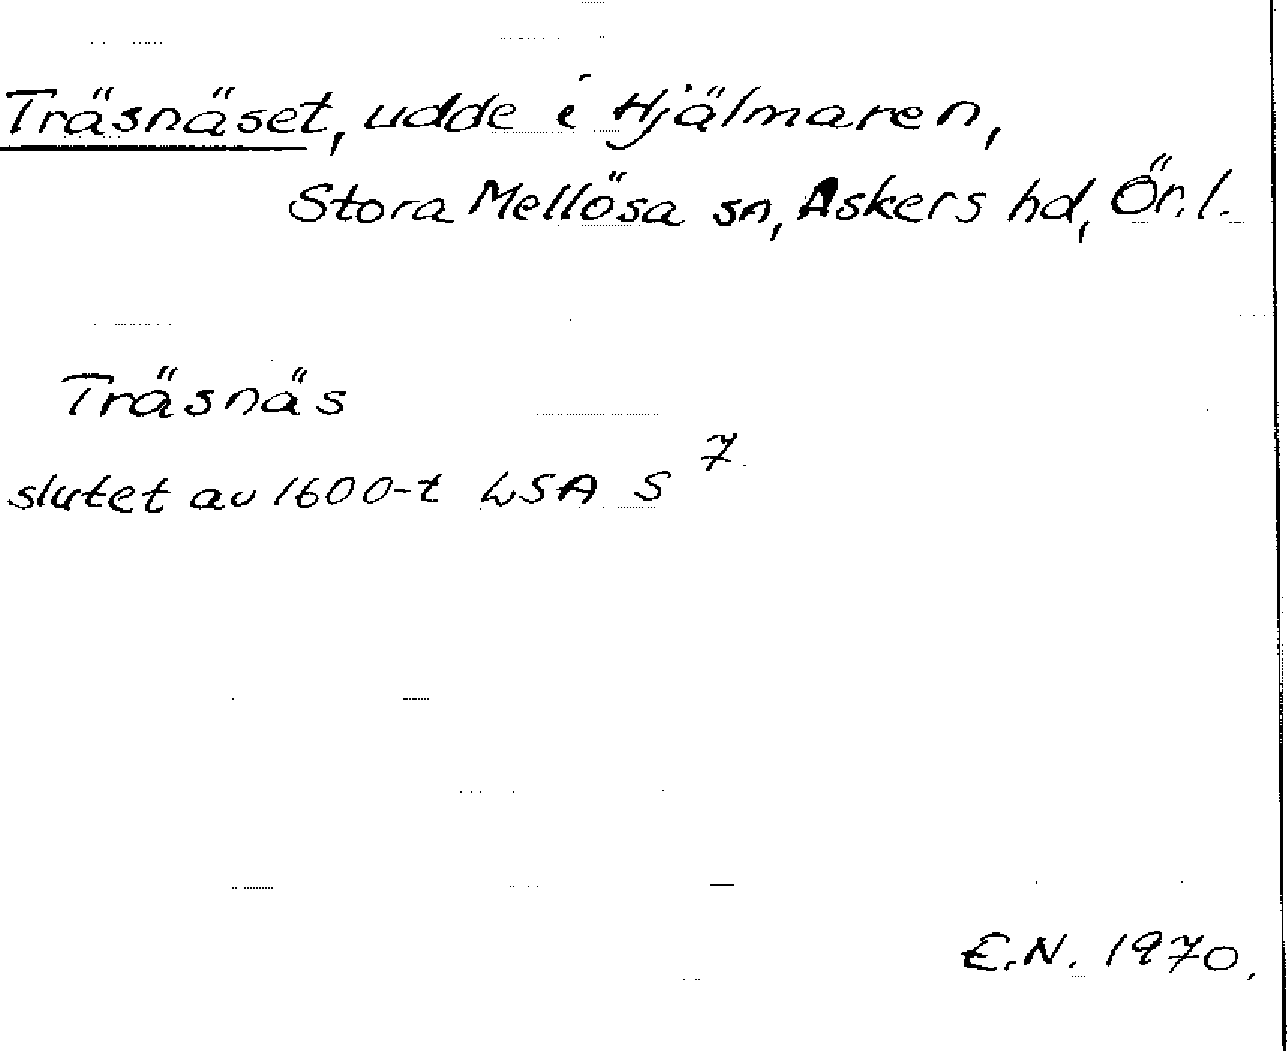 Träsnäset, udde i Hjälmaren,
Stora Mellösa sn, Askers hd, Ör. l.
Träsnäs
slutet av 1600-t LSA S⁷
E.N. 1970.